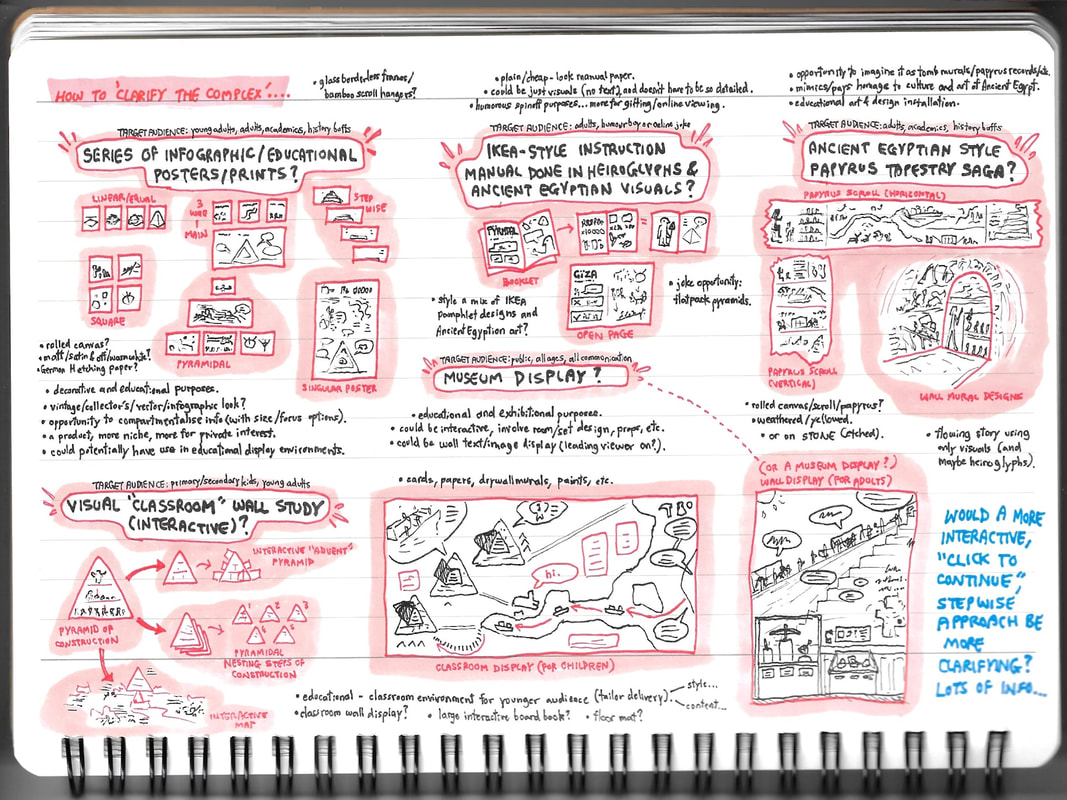 HOW TO 'CLARIFY THE COMPLEX'....
• glass borderless frames/
bamboo scroll hangers?
• plain/cheap-look manual paper.
• could be just visuals (no text), and doesn't have to be so detailed.
• humorous spinoff purposes... more for gifting/online viewing.
• opportunity to imagine it as tomb murals/papyrus records/etc.
• mimics/pays homage to culture and art of Ancient Egypt.
• educational art & design installation.
TARGET AUDIENCE: young adults, adults, academics, history buffs
SERIES OF INFOGRAPHIC/EDUCATIONAL
POSTERS/PRINTS?
LINEAR/EQUAL
3
WEE
1
MAIN
STEP
WISE
SQUARE
PYRAMIDAL
SINGULAR POSTER
• rolled canvas?
• matt/satin & off/warmwhite?
• German Hetching paper?
• decorative and educational purposes.
• vintage/collector's/vector/infographic look?
• opportunity to compartmentalise info (with size/focus options).
• a product, more niche, more for private interest.
• could potentially have use in educational display environments.
TARGET AUDIENCE: adults, humour buy or online joke
IKEA-STYLE INSTRUCTION
MANUAL DONE IN HEIROGLYPHS &
ANCIENT EGYPTIAN VISUALS?
PYRAMID
BOOKLET
GIZA
OPEN PAGE
• style a mix of IKEA
pamphlet designs and
Ancient Egyption art?
• joke opportunity:
flatpack pyramids.
TARGET AUDIENCE: adults, academics, history buffs
ANCIENT EGYPTIAN STYLE
PAPYRUS TAPESTRY SAGA?
PAPYRUS SCROLL (HORIZONTAL)
PAPYRUS SCROLL
(VERTICAL)
WALL MURAL DESIGNS
• rolled canvas/scroll/papyrus?
• weathered/yellowed.
• or on STONE (etched).
• flowing story using
only visuals (and
maybe heiroglyphs).
TARGET AUDIENCE: public, all ages, all communication
MUSEUM DISPLAY?
• educational and exhibitional purposes.
• could be interactive, involve room/set design, props, etc.
• could be wall text/image display (leading viewer on?).
TARGET AUDIENCE: primary/secondary kids, young adults
VISUAL "CLASSROOM" WALL STUDY
(INTERACTIVE)?
PYRAMID OF
CONSTRUCTION
INTERACTIVE "ADVENT"
PYRAMID
1
2
3
4
5
PYRAMIDAL
NESTING STEPS OF
CONSTRUCTION
INTERACTIVE
MAT
• cards, papers, drywall murals, paints, etc.
hi.
CLASSROOM DISPLAY (FOR CHILDREN)
• educational - classroom environment for younger audience (tailor delivery)
style...
content...
• classroom wall display? • large interactive board book? • floor mat?
(OR A MUSEUM DISPLAY?)
WALL DISPLAY (FOR ADULTS)
WOULD A MORE
INTERACTIVE,
"CLICK TO
CONTINUE,"
STEPWISE
APPROACH BE
MORE
CLARIFYING?
LOTS OF INFO...